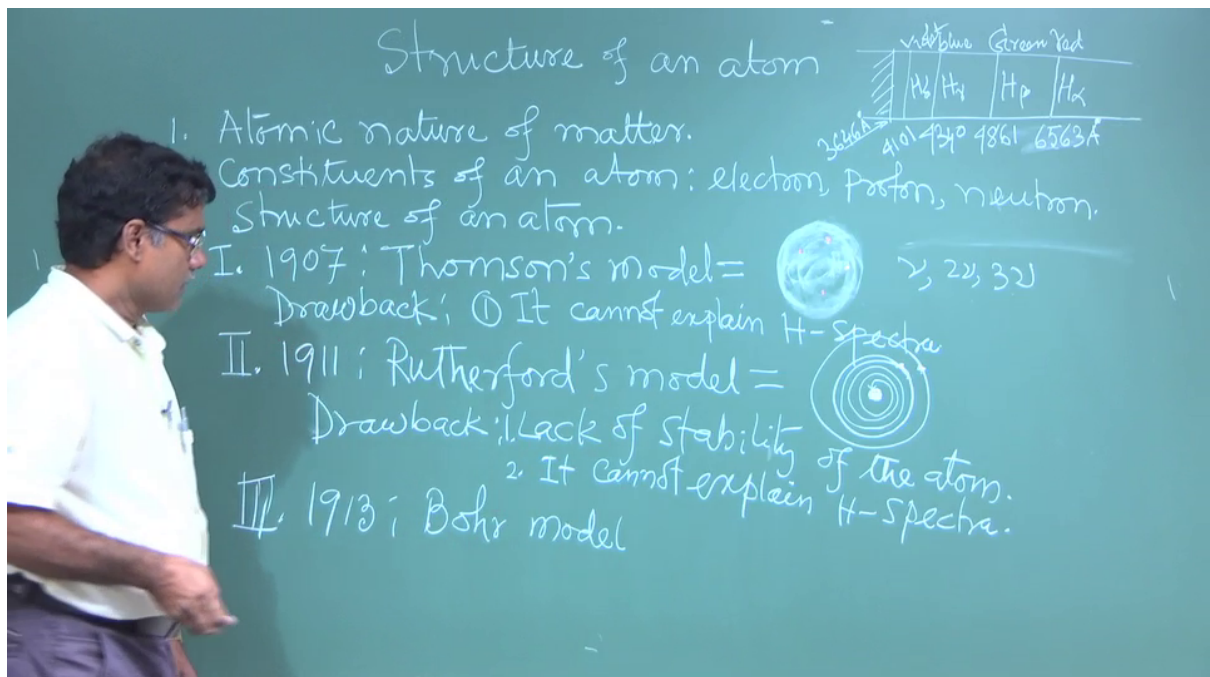 Structure of an atom
violet blue Green red
Hδ Hγ Hβ Hα
3646Å 4101 4340 4861 6563Å
1. Atomic nature of matter.
Constituents of an atom: electron, proton, neutron.
Structure of an atom.
I. 1907: Thomson's model=
ν, 2ν, 3ν
Drawback: ① It cannot explain H-spectra
II. 1911: Rutherford's model=
Drawback: 1. Lack of stability of the atom.
2. It cannot explain H-spectra.
III. 1913: Bohr model